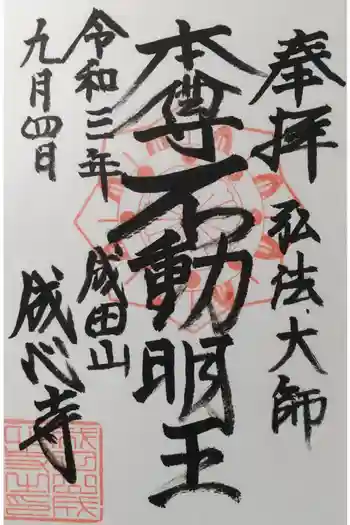 奉拝
弘法大師
本尊不動明王
令和三年
九月四日
成田山
成心寺